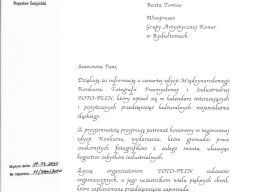 Bogusław Śmigielski
Beata Tomas
Wiceprezes
Grupy Artystycznej Konar
w Rydułtowach
Szanowna Pani
Dziękuję za informację o czwartej edycji Międzynarodowego
Konkursu Fotografii Przemysłowej i Industrialnej
TOTO-PEIN, który wpisał się w kalendarz interesujących
i pożytecznych przedsięwzięć kulturalnych województwa
śląskiego.
Z przyjemnością przyjmuję patronat honorowy w tegorocznej
edycji Konkursu, wydarzenia, które gromadzi prace
znakomitych fotografików z całego świata, ukazując
bogactwo zabytków industrialnych.
Życzę organizatorom TOTO-PEIN sukcesów
organizacyjnych, a jego uczestnikom wielu pięknych chwil,
które zaplanowane przedsięwzięcie zapowiada.
Wysłano dnia:
Nr rejestru: